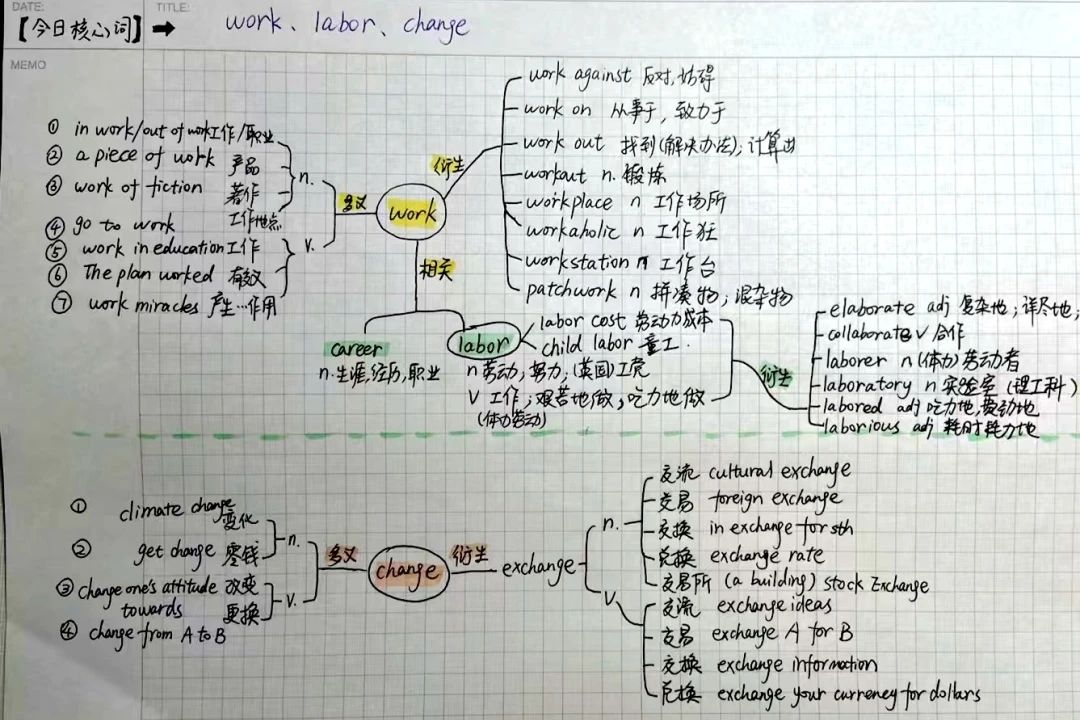 DATE:
TITLE:
【今日核心词】➡ work、labor、change
MEMO
① in work/out of work工作/职业
② a piece of work 产品
③ work of fiction 著作
④ go to work 工作地点
n.
⑤ work in education工作
⑥ The plan worked 有效
⑦ work miracles 产生…作用
v.
多义
work
衍生
work against 反对,妨碍
work on 从事于,致力于
work out 找到(解决办法);计算出
workout n. 锻炼
workplace n 工作场所
workaholic n 工作狂
workstation n 工作台
patchwork n 拼凑物;混杂物
相关
career
n.生涯,经历,职业
labor
labor cost 劳动力成本
child labor 童工.
n 劳动,努力,(英国)工党
V 工作;艰苦地做,吃力地做
(体力劳动)
衍生
elaborate adj 复杂地;详尽地;
collaborate V 合作
laborer n (体力)劳动者
laboratory n 实验室(理工科)
labored adj 吃力地,费劲地
laborious adj 耗时耗力地
① climate change 变化
② get change 零钱
n.
③ change one's attitude 改变
towards 更换
④ change from A to B
v.
多义
change
衍生
exchange
n.
交流 cultural exchange
交易 foreign exchange
交换 in exchange for sth
兑换 exchange rate
交易所 (a building) stock Exchange
v
交流 exchange ideas
交易 exchange A for B
交换 exchange information
兑换 exchange your currency for dollars